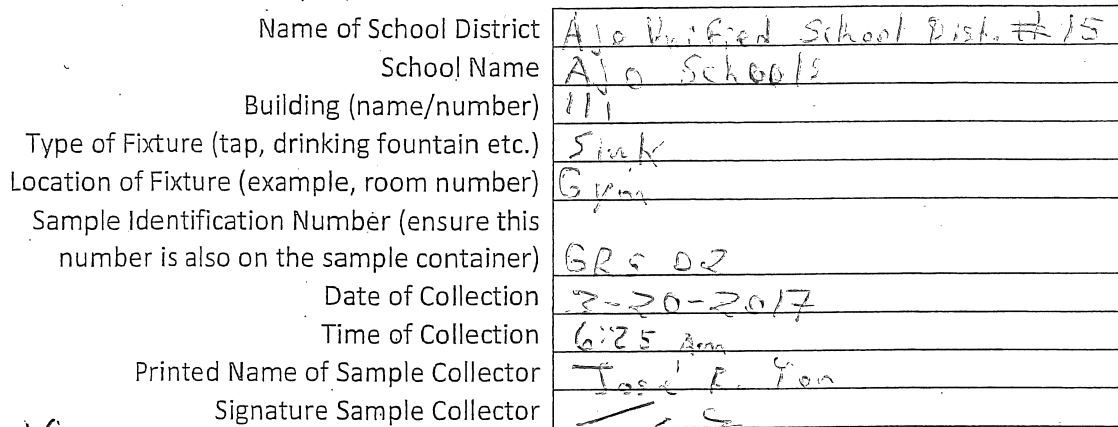 Name of School District Ajo Unified School Dist. #15
School Name Ajo Schools
Building (name/number) 111
Type of Fixture (tap, drinking fountain etc.) Sink
Location of Fixture (example, room number) Gym
Sample Identification Number (ensure this
number is also on the sample container)
Date of Collection 3-20-2017
Time of Collection 6:25 Am
Printed Name of Sample Collector
Signature Sample Collector